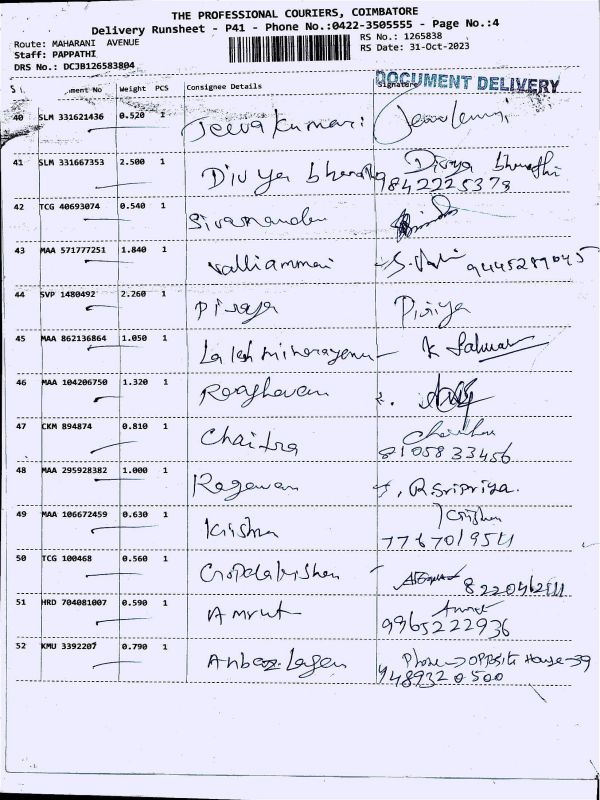 THE PROFESSIONAL COURIERS, COIMBATORE
Delivery Runsheet - P41 - Phone No.:0422-3505555 - Page No.:4
Route: MAHARANI AVENUE
RS No.: 1265838
Staff: PAPPATHI
RS Date: 31-Oct-2023
DRS No.: DCJB126583804
DOCUMENT DELIVERY
ment No Weight PCS Consignee Details Signature
40 SLM 331621436 0.520 1 Jeeva Kumari
41 SLM 331667353 2.500 1 Divya bharathi Divya bharathi
9842225378
42 TCG 40693074 0.540 1
43 MAA 571777251 1.840 1 Valliammai 9445289045
44 SVP 1480492 2.260 1
45 MAA 862136864 1.050 1
46 MAA 104206750 1.320 1 Raaghavan
47 CKM 894874 0.810 1 Chaitra
8105833456
48 MAA 295928382 1.000 1 Ragavan R. Sripriya.
49 MAA 106672459 0.630 1 Krishna
50 TCG 100468 0.560 1 Gopalakrishnan
51 HRD 704081007 0.590 1 Amrut Amrut
9965222936
52 KMU 3392207 0.790 1 Phone → OPPOSITE House-39
9489320500